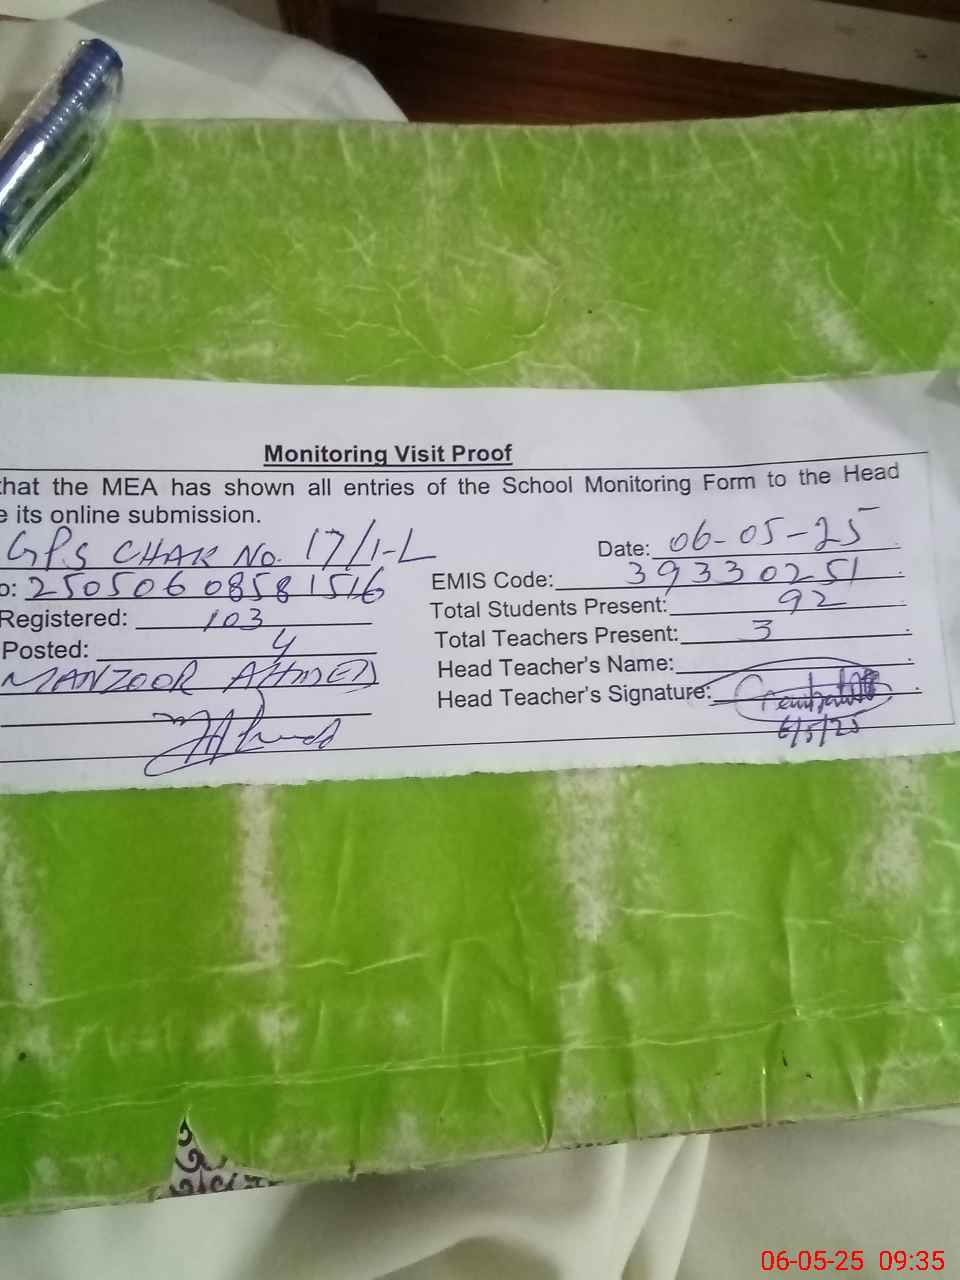 Monitoring Visit Proof
that the MEA has shown all entries of the School Monitoring Form to the Head
e its online submission.
GPS CHAK No. 17/1-L Date: 06-05-25
o: 2505060858 1516 EMIS Code: 39330251
Registered: 103 Total Students Present: 92
Posted: 4 Total Teachers Present: 3
MANZOOR AHMED Head Teacher's Name:
Head Teacher's Signature:
6/5/25
06-05-25 09:35